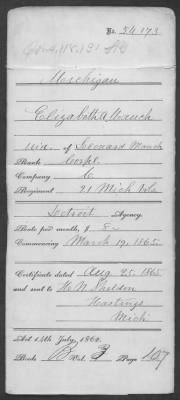 No. 54,173
Michigan
Elizabeth A Mauch
wid. of Leonard Mauch
Rank Corpl.
Company C
Regiment 21 Mich Vols
Detroit Agency.
Rate per month, $ 8-
Commencing March 19, 1865
Certificate dated Aug 25, 1865
and sent to H. N. Sheldon
Hastings
Mich
Act 14th July, 1862.
Book B Vol. 3 Page 107